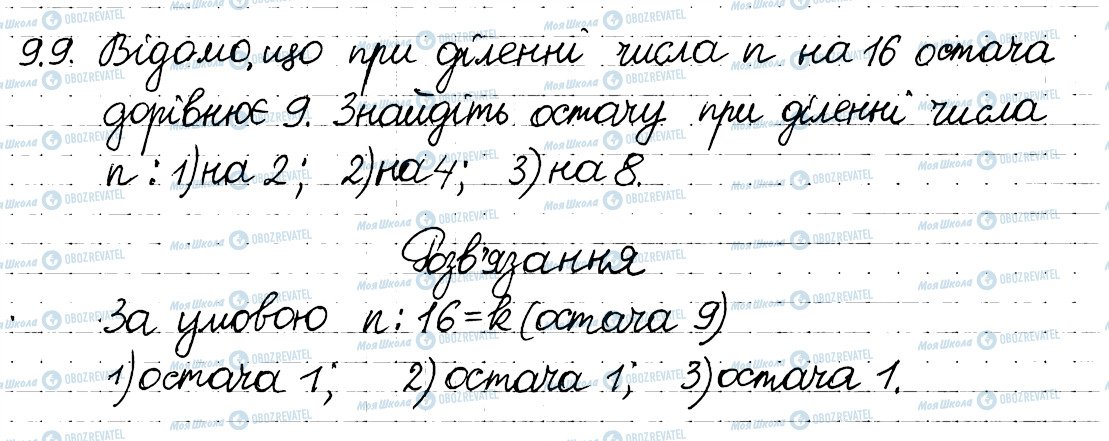 9.9. Відомо, що при діленні числа n на 16 остача
дорівнює 9. Знайдіть остачу при діленні числа
n: 1) на 2; 2) на 4; 3) на 8.
Розв'язання
За умовою n : 16 = k (остача 9)
1) остача 1; 2) остача 1; 3) остача 1.